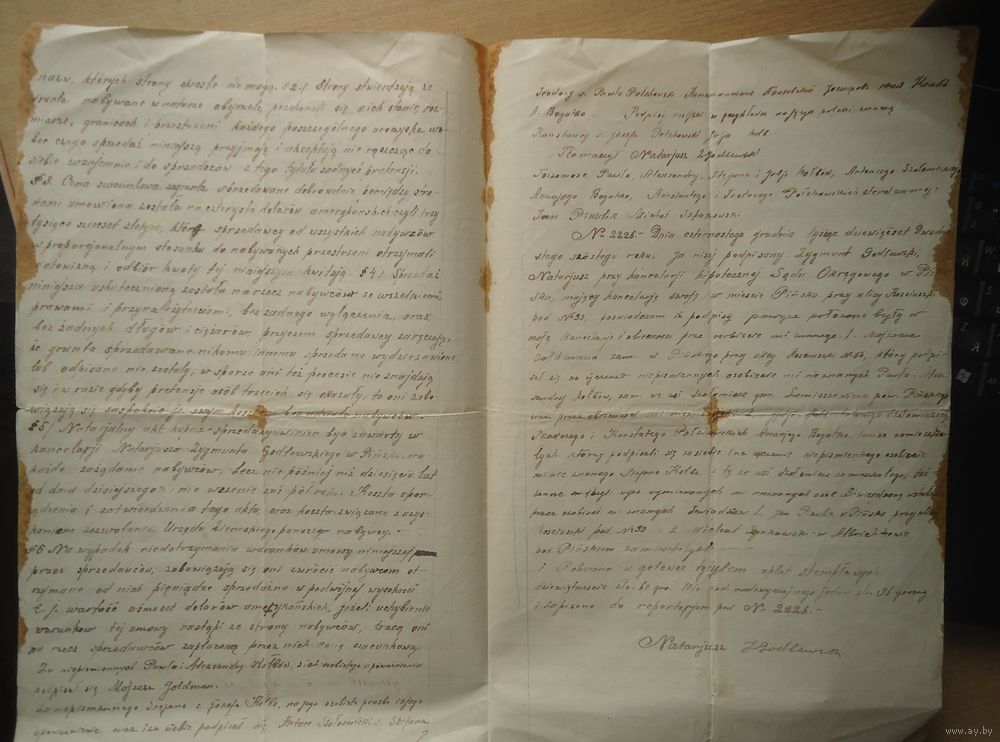 nazw, których strony określić nie mogą. § 2./ Strony stwierdzają że
grunta nabywane w naturze obejrzeli, przekonali się o ich stanie, roz-
miarze, granicach i przestrzeni każdego poszczególnego uroczyska wo-
bec czego sprzedaż niniejszą przyjmują i akceptują nie rącząc do
siebie wzajemnie i do sprzedawców z tego tytułu żadnych pretensji.
§ 3. Cena szacunkowa sprzedawane dobrowolnie pomiędzy stro-
nami umówiona została na czterysta dolarów amerykańskich czyli trzy
tysiące sześćset złotych, którą sprzedawcy od wszystkich nabywców
w proporcjonalnym stosunku do nabywanych przestrzeni otrzymali
gotowizną i odbiór kwoty tej niniejszym kwitują. § 4/ Sprzedaż
niniejsza uskutecznioną została na rzecz nabywców ze wszelkiemi
prawami i przynależytościami, bez żadnego wyłączenia, oraz
bez żadnych długów i ciężarów, przyczem sprzedawcy zaręczają,
że grunta sprzedawane nikomu innemu sprzedane wydzierżawione
lub oddane nie zostały, w sporze ani też procesie nie znajdują
się i w razie gdyby pretensje osób trzecich się okazały, to oni zobo-
wiązują się zaspokoić je swym kosztem bez nabywców.
§ 5/ Notarjalny akt kupna-sprzedaży winien być zawarty w
kancelarji Notarjusza Zygmunta Godlewskiego w Pińsku na
każde zażądanie nabywców, lecz nie później niż dziesięciu lat
od dnia dzisiejszego i nie wcześniej zaś pół roku. Koszta spor-
ządzenia i zatwierdzenia tego aktu, oraz koszta związane z uzys-
kaniem zezwolenia Urzędu Ziemskiego ponoszą nabywcy.-
§ 6 Na wypadek niedotrzymania warunków umowy niniejszej
przez sprzedawców, zobowiązują się oni zwrócić nabywcom ot-
rzymane od nich pieniądze sprzedażne w podwójnej wysokości
t. j. wartość ośmset dolarów amerykańskich, jeżeli uchybienie
warunków tej umowy nastąpi ze strony nabywców, tracą oni
na rzecz sprzedawców zapłaconą przez nich cenę szacunkową.
Za niepiśmiennych Pawła i Aleksandry Kołbów, z ich osobistego upoważnienia
podpisał się Mojżesz Goldman.
Za niepiśmiennego Stefana s. Józefa Kołbo, na jego osobistą prośbę i jego
upoważnienie oraz za siebie podpisał się Anton s. Stefana
Teodory s. Pawła Połchowski
A. Bogatko. Podpisy rosyjskie w przekładzie na język polski
Konstanty s. Józefa Połchowski
Tłomaczył Notarjusz ZGodlewski
Tożsamość Pawła, Aleksandry, Stefana i Kołbów, Antoniego
Ananjego Bogatko, Konstantego i Teodorego Połchowskich stwierdzamy:
Jan Michał Szpakowski
No 2225.- Dnia czternastego grudnia tysiąc dziewięćset dwudzie-
stego szóstego roku. Ja niżej podpisany Zygmunt Godlewski,
Notarjusz przy kancelarji hipotecznej Sądu Okręgowego w Piń-
sku, mający kancelarję swoją w mieście Pińsku przy ulicy Kościuszki
pod No 33, poświadczam iż podpisy powyższe położone były w
mojej kancelarji i obecności przez osobiście mi znanego 1. Mojżesza
Goldmana zam. w Pińsku przy ulicy Kościuszki No 56, który podpi-
sał się na życzenie niepiśmiennych osobiście mi nieznanych Pawła i Alek-
sandry Kołbów, zam. we wsi gm. Łemieszewicze pow. Pińskiego
oraz przez obecnych mi 2.
Teodorego i Konstantego Połchowskich Ananjego Bogatko, tamże zamieszka-
łych którzy podpisali się za siebie i na życzenie niepiśmiennego osobiście
mi nieznanego Stefana Kołba z tejże wsi zamieszkałego, toż-
samość wyż wymienionych mi nieznanych osób stwierdzoną została
przez osobiście mi znanych świadków 1. Jan w Pińsku przy ulicy
Kościuszki pod No 33 - 2. Michał Szpakowski w Albrechtowie
pod Pińskiem zamieszkałych - -
i Pobrano w gotówce tytułem opłat stemplowych
dziewiętnaście zło. gr. 10% nadzwyczajnego jeden zło. 96 groszy
i zapisano do repertorjum pod No 2225.-
Notarjusz ZGodlewski
www.ay.by